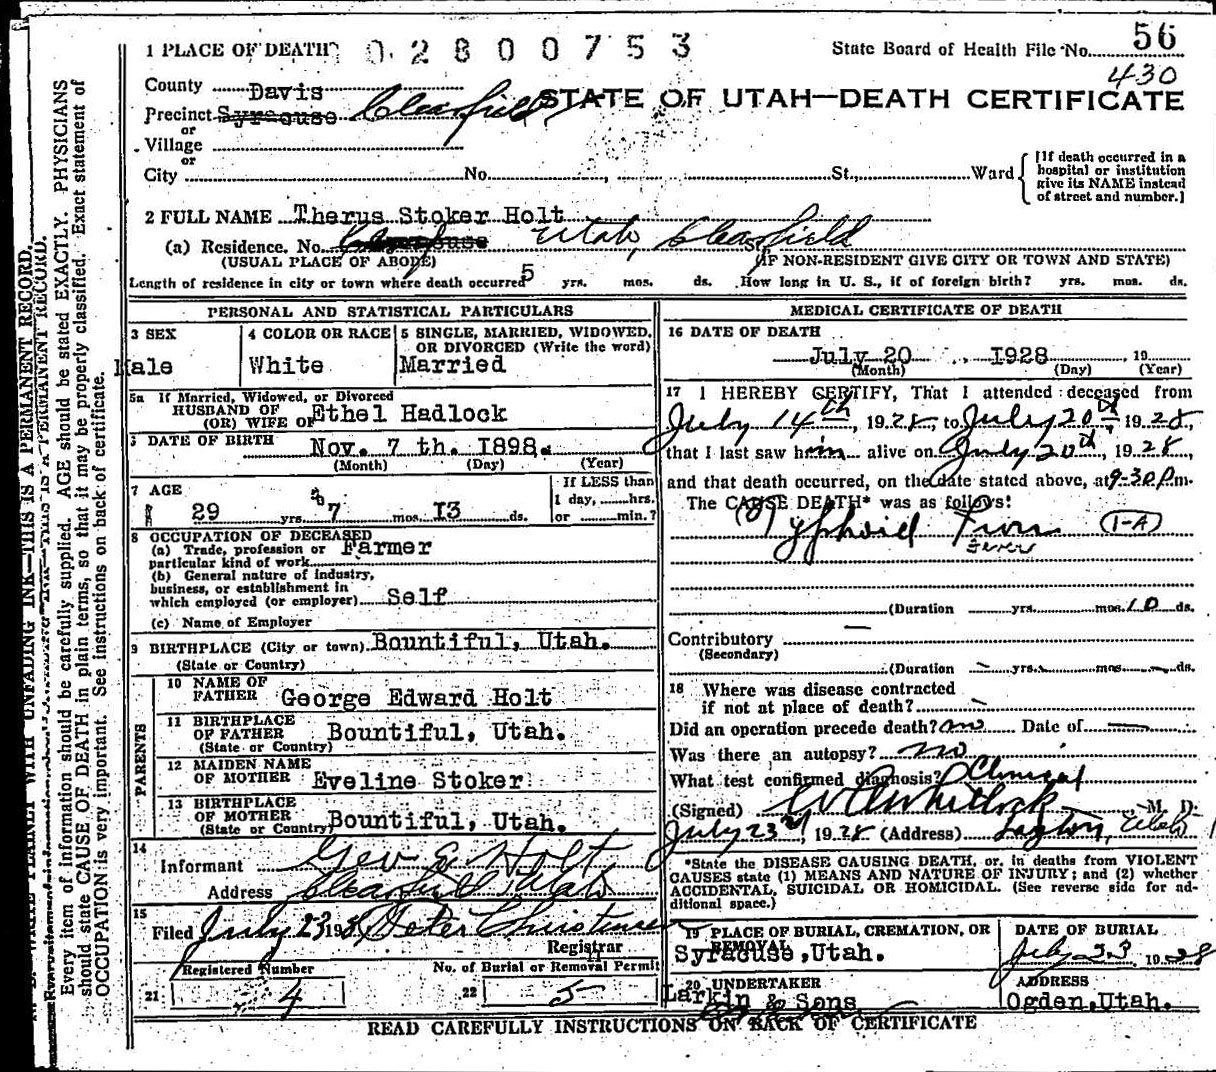 1 PLACE OF DEATH 02800753 State Board of Health File No. 56
430
County Davis
STATE OF UTAH—DEATH CERTIFICATE
Precinct Syracuse Clearfield
or
Village
or
City No. St., Ward
[If death occurred in a
hospital or institution
give its NAME instead
of street and number.]
2 FULL NAME Therus Stoker Holt
(a) Residence. No. Utah, Clearfield
(USUAL PLACE OF ABODE) (IF NON-RESIDENT GIVE CITY OR TOWN AND STATE)
Length of residence in city or town where death occurred 5 yrs. mos. ds. How long in U. S., if of foreign birth? yrs. mos. ds.
PERSONAL AND STATISTICAL PARTICULARS
3 SEX 4 COLOR OR RACE 5 SINGLE, MARRIED, WIDOWED,
OR DIVORCED (Write the word)
Male White Married
5a If Married, Widowed, or Divorced
HUSBAND OF
(OR) WIFE OF Ethel Hadlock
6 DATE OF BIRTH Nov. 7 th. I898.
(Month) (Day) (Year)
7 AGE If LESS than
1 day, hrs.
or min.?
29 yrs. 7 mos. I3 ds.
8 OCCUPATION OF DECEASED
(a) Trade, profession or Farmer
particular kind of work
(b) General nature of industry,
business, or establishment in
which employed (or employer) Self
(c) Name of Employer
9 BIRTHPLACE (City or town) Bountiful, Utah.
(State or Country)
PARENTS
10 NAME OF
FATHER George Edward Holt
11 BIRTHPLACE
OF FATHER Bountiful, Utah.
(State or Country)
12 MAIDEN NAME
OF MOTHER Eveline Stoker
13 BIRTHPLACE
OF MOTHER
(State or Country) Bountiful, Utah.
14
Informant Geo E. Holt,
Address Clearfield Utah
15
Filed July 23 1928 Peter Christensen
Registrar
Registered Number No. of Burial or Removal Permit
21 4 22 5
MEDICAL CERTIFICATE OF DEATH
16 DATE OF DEATH
July 20 I928 , 19
(Month) (Day) (Year)
17 I HEREBY CERTIFY, That I attended deceased from
July 14th, 1928, to July 20th, 1928,
that I last saw him alive on July 20th, 1928,
and that death occurred, on the date stated above, at 9-30 P.m.
The CAUSE DEATH* was as follows:
Typhoid (1-A)
Fever
(Duration yrs. mos. 10 ds.
Contributory —
(Secondary)
(Duration — yrs. mos. — ds.
18 Where was disease contracted
if not at place of death? —
Did an operation precede death? no Date of —
Was there an autopsy? no
What test confirmed diagnosis? Clinical
(Signed) Whitlock M. D.
July 23rd, 1928 (Address) Layton, Utah
*State the DISEASE CAUSING DEATH, or, in deaths from VIOLENT
CAUSES state (1) MEANS AND NATURE OF INJURY; and (2) whether
ACCIDENTAL, SUICIDAL OR HOMICIDAL. (See reverse side for ad-
ditional space.)
19 PLACE OF BURIAL, CREMATION, OR
REMOVAL
DATE OF BURIAL
Syracuse, Utah. July 23 1928
20 UNDERTAKER ADDRESS
Larkin & Sons Ogden, Utah.
READ CAREFULLY INSTRUCTIONS ON BACK OF CERTIFICATE
WRITE PLAINLY WITH UNFADING INK—THIS IS A PERMANENT RECORD.
Every item of information should be carefully supplied. AGE should be stated EXACTLY. PHYSICIANS
should state CAUSE OF DEATH in plain terms, so that it may be properly classified. Exact statement of
OCCUPATION is very important. See instructions on back of certificate.